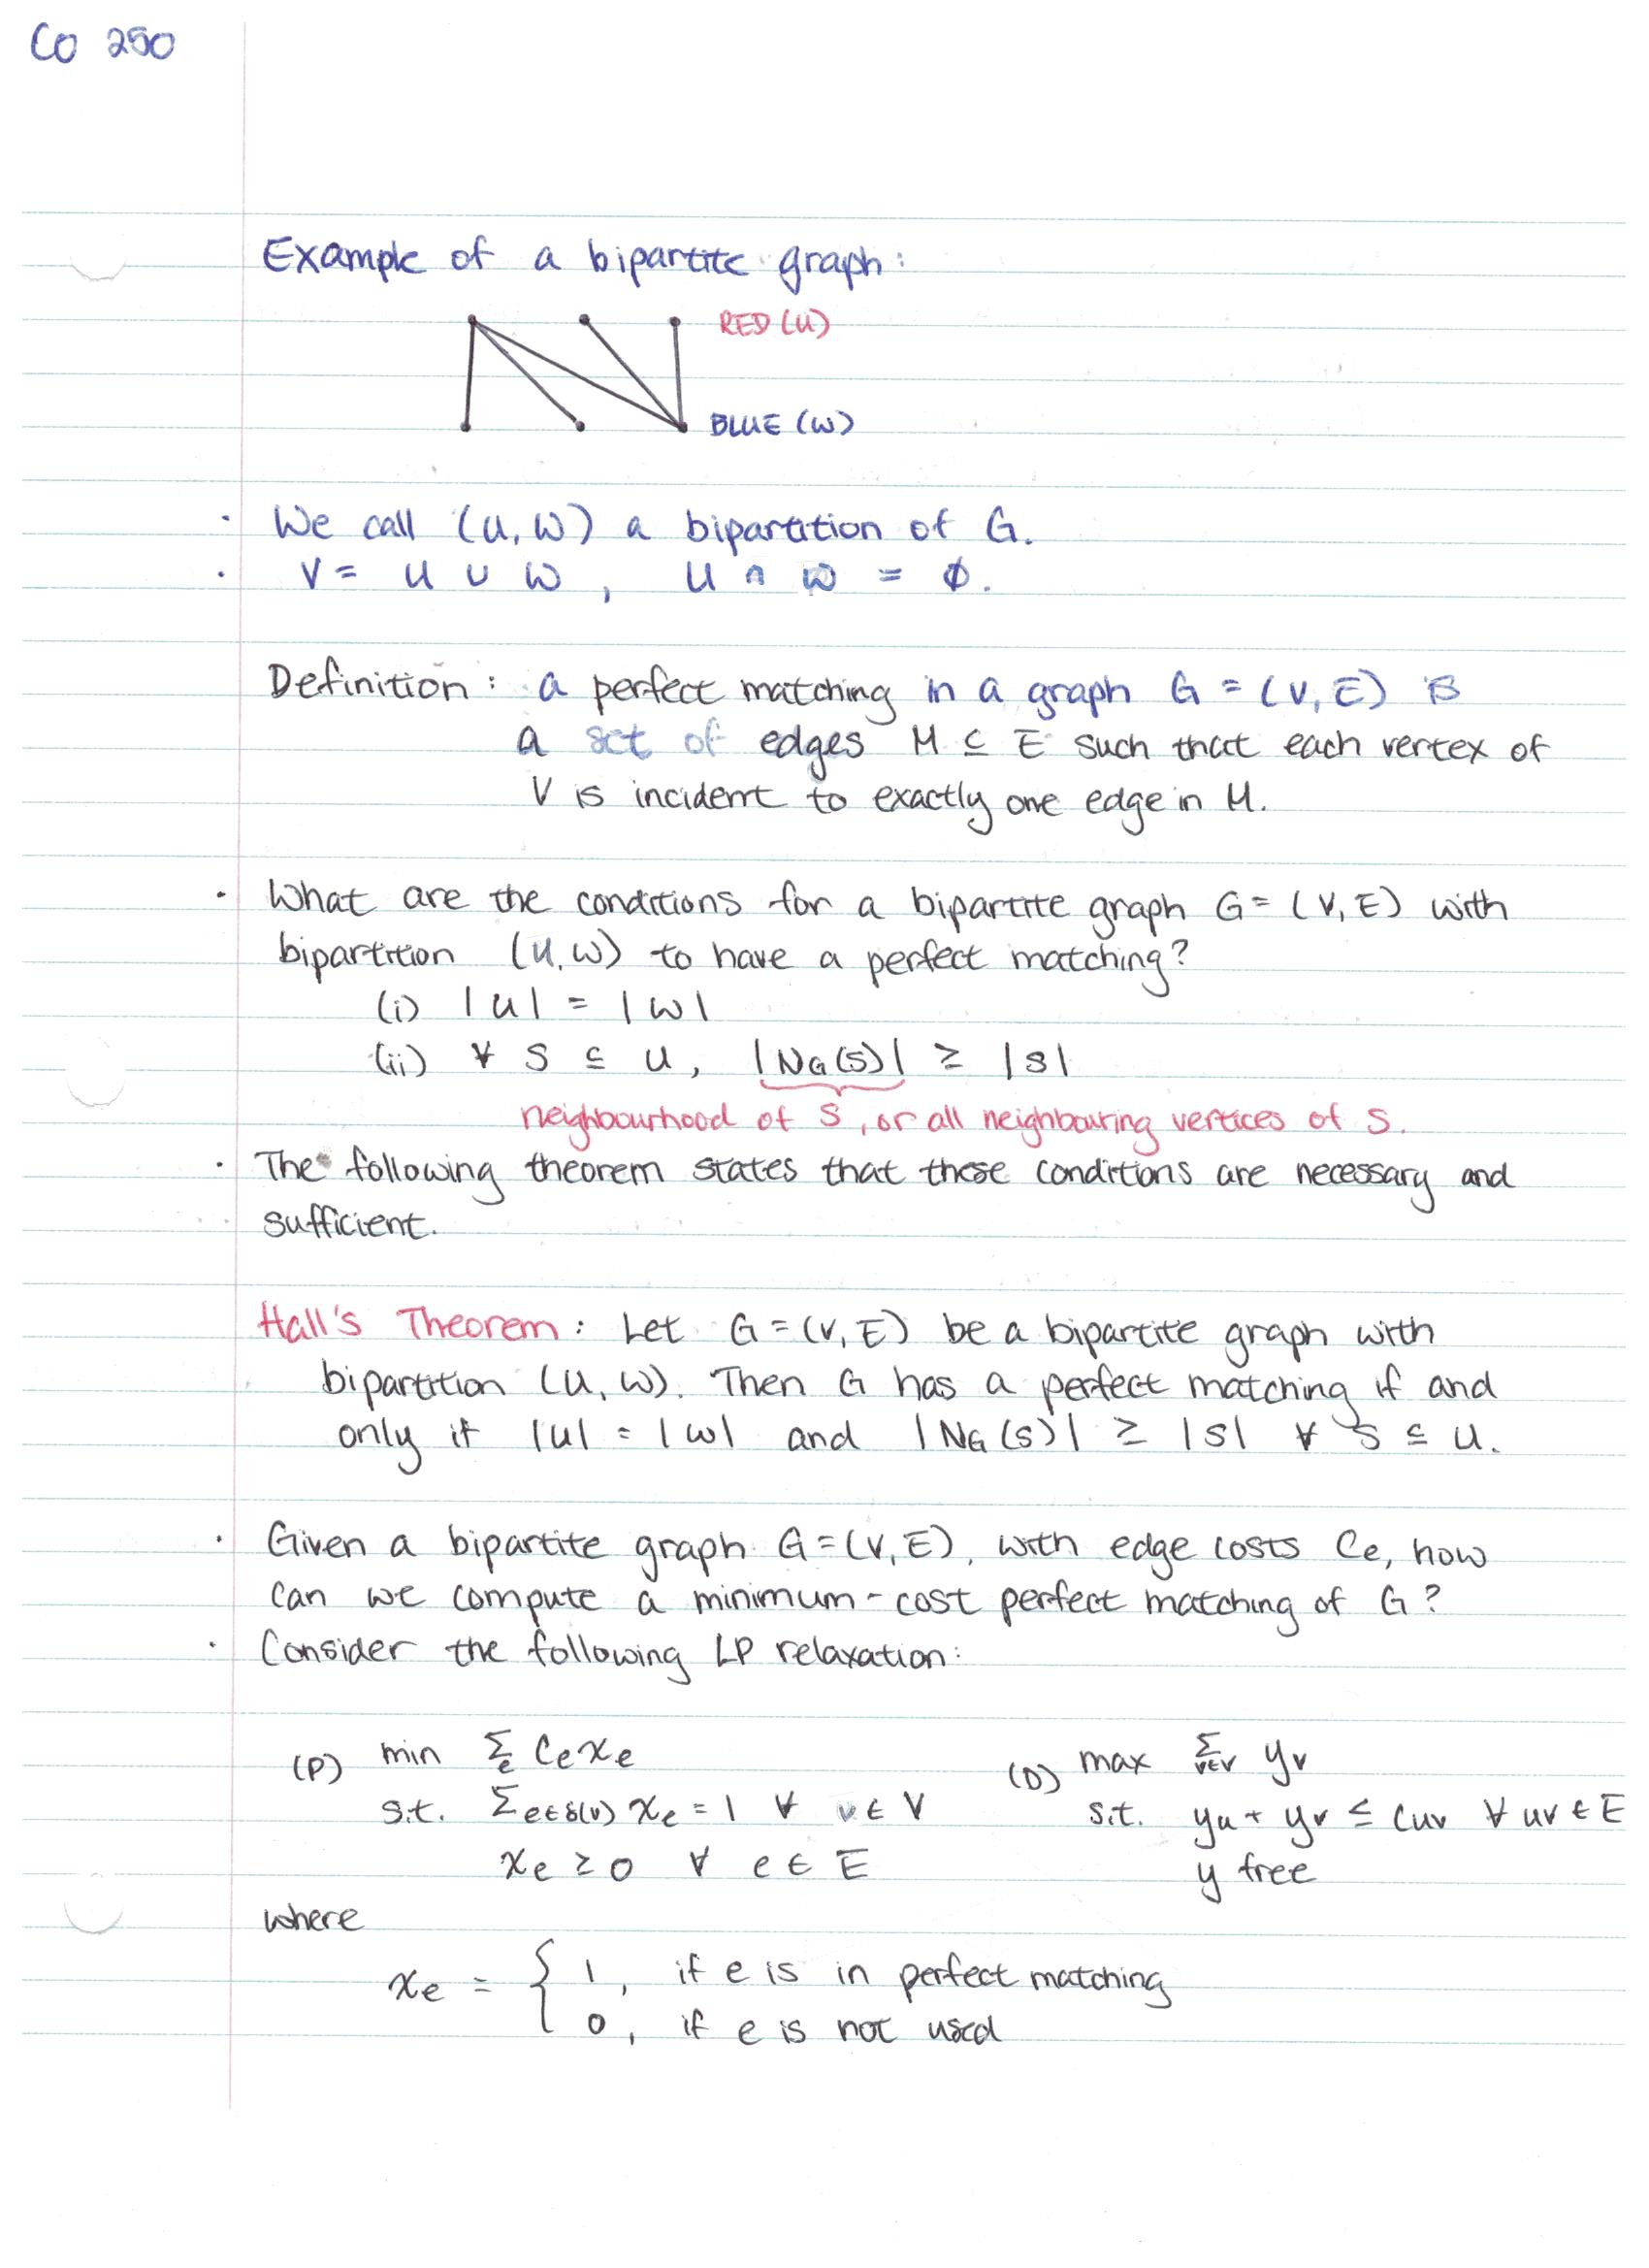 CO 250
Example of a bipartite graph:
RED (U)
BLUE (W)
· We call (U, W) a bipartition of G.
· V = U ∪ W , U ∩ W = ∅.
Definition: a perfect matching in a graph G = (V, E) is
a set of edges M ⊆ E such that each vertex of
V is incident to exactly one edge in M.
· What are the conditions for a bipartite graph G = (V, E) with
bipartition (U, W) to have a perfect matching?
(i) |U| = |W|
(ii) ∀ S ⊆ U, |N_G(S)| ≥ |S|
neighbourhood of S, or all neighbouring vertices of S.
· The following theorem states that these conditions are necessary and
sufficient.
Hall's Theorem: Let G = (V, E) be a bipartite graph with
bipartition (U, W). Then G has a perfect matching if and
only if |U| = |W| and |N_G(S)| ≥ |S| ∀ S ⊆ U.
· Given a bipartite graph G = (V, E), with edge costs Ce, how
can we compute a minimum-cost perfect matching of G?
· Consider the following LP relaxation:
(P) min Σ_e C_e x_e (D) max Σ_{v∈V} y_v
s.t. Σ_{e∈δ(v)} x_e = 1 ∀ v ∈ V s.t. y_u + y_v ≤ C_uv ∀ uv ∈ E
x_e ≥ 0 ∀ e ∈ E y free
where
x_e = { 1, if e is in perfect matching
0, if e is not used